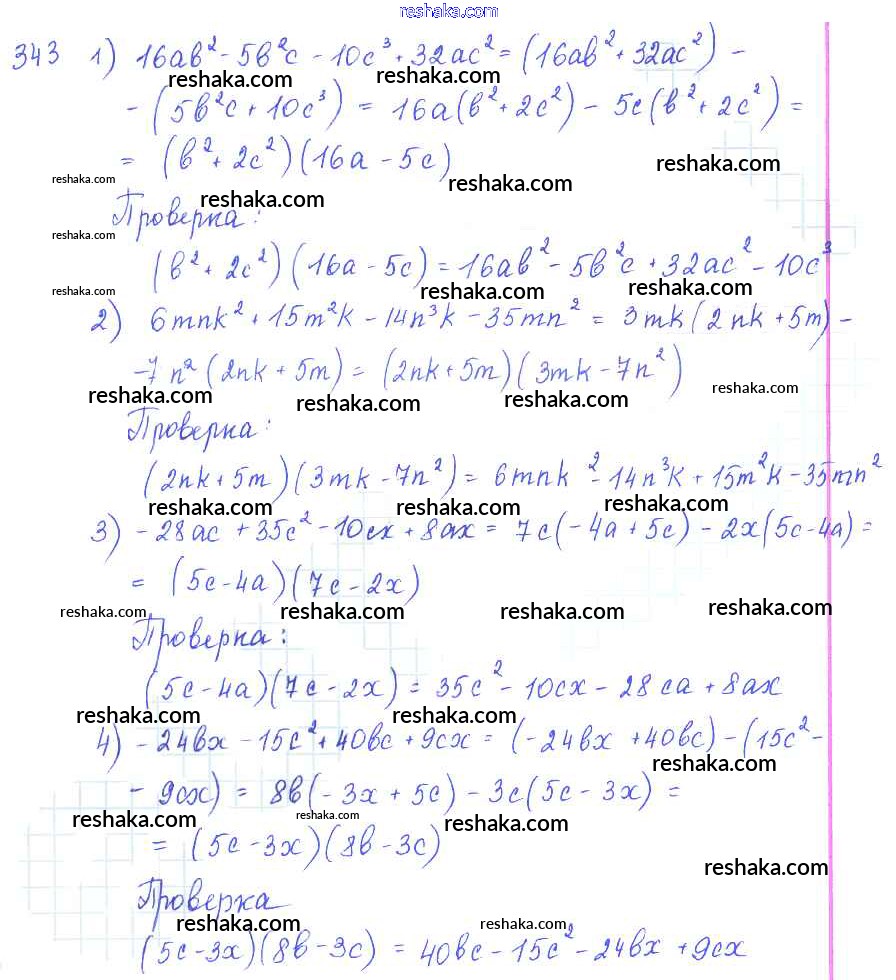 reshaka.com
343 1) 16ab² - 5b²c - 10c³ + 32ac² = (16ab² + 32ac²) -
reshaka.com reshaka.com reshaka.com
- (5b²c + 10c³) = 16a(b² + 2c²) - 5c(b² + 2c²) =
= (b² + 2c²)(16a - 5c)
reshaka.com reshaka.com reshaka.com reshaka.com
Проверка:
reshaka.com
(b² + 2c²)(16a - 5c) = 16ab² - 5b²c + 32ac² - 10c³
reshaka.com reshaka.com reshaka.com
2) 6mnk² + 15m²k - 14n³k - 35mn² = 3mk(2nk + 5m) -
- 7n²(2nk + 5m) = (2nk + 5m)(3mk - 7n²)
reshaka.com reshaka.com reshaka.com reshaka.com
Проверка:
(2nk + 5m)(3mk - 7n²) = 6mnk² - 14n³k + 15m²k - 35mn²
reshaka.com reshaka.com reshaka.com
3) - 28ac + 35c² - 10cx + 8ax = 7c(-4a + 5c) - 2x(5c - 4a) =
= (5c - 4a)(7c - 2x)
reshaka.com reshaka.com reshaka.com reshaka.com
Проверка:
(5c - 4a)(7c - 2x) = 35c² - 10cx - 28ca + 8ax
reshaka.com reshaka.com
4) - 24bx - 15c² + 40bc + 9cx = (-24bx + 40bc) - (15c² -
reshaka.com
- 9cx) = 8b(-3x + 5c) - 3c(5c - 3x) =
reshaka.com reshaka.com reshaka.com
= (5c - 3x)(8b - 3c)
reshaka.com
Проверка
reshaka.com reshaka.com
(5c - 3x)(8b - 3c) = 40bc - 15c² - 24bx + 9cx